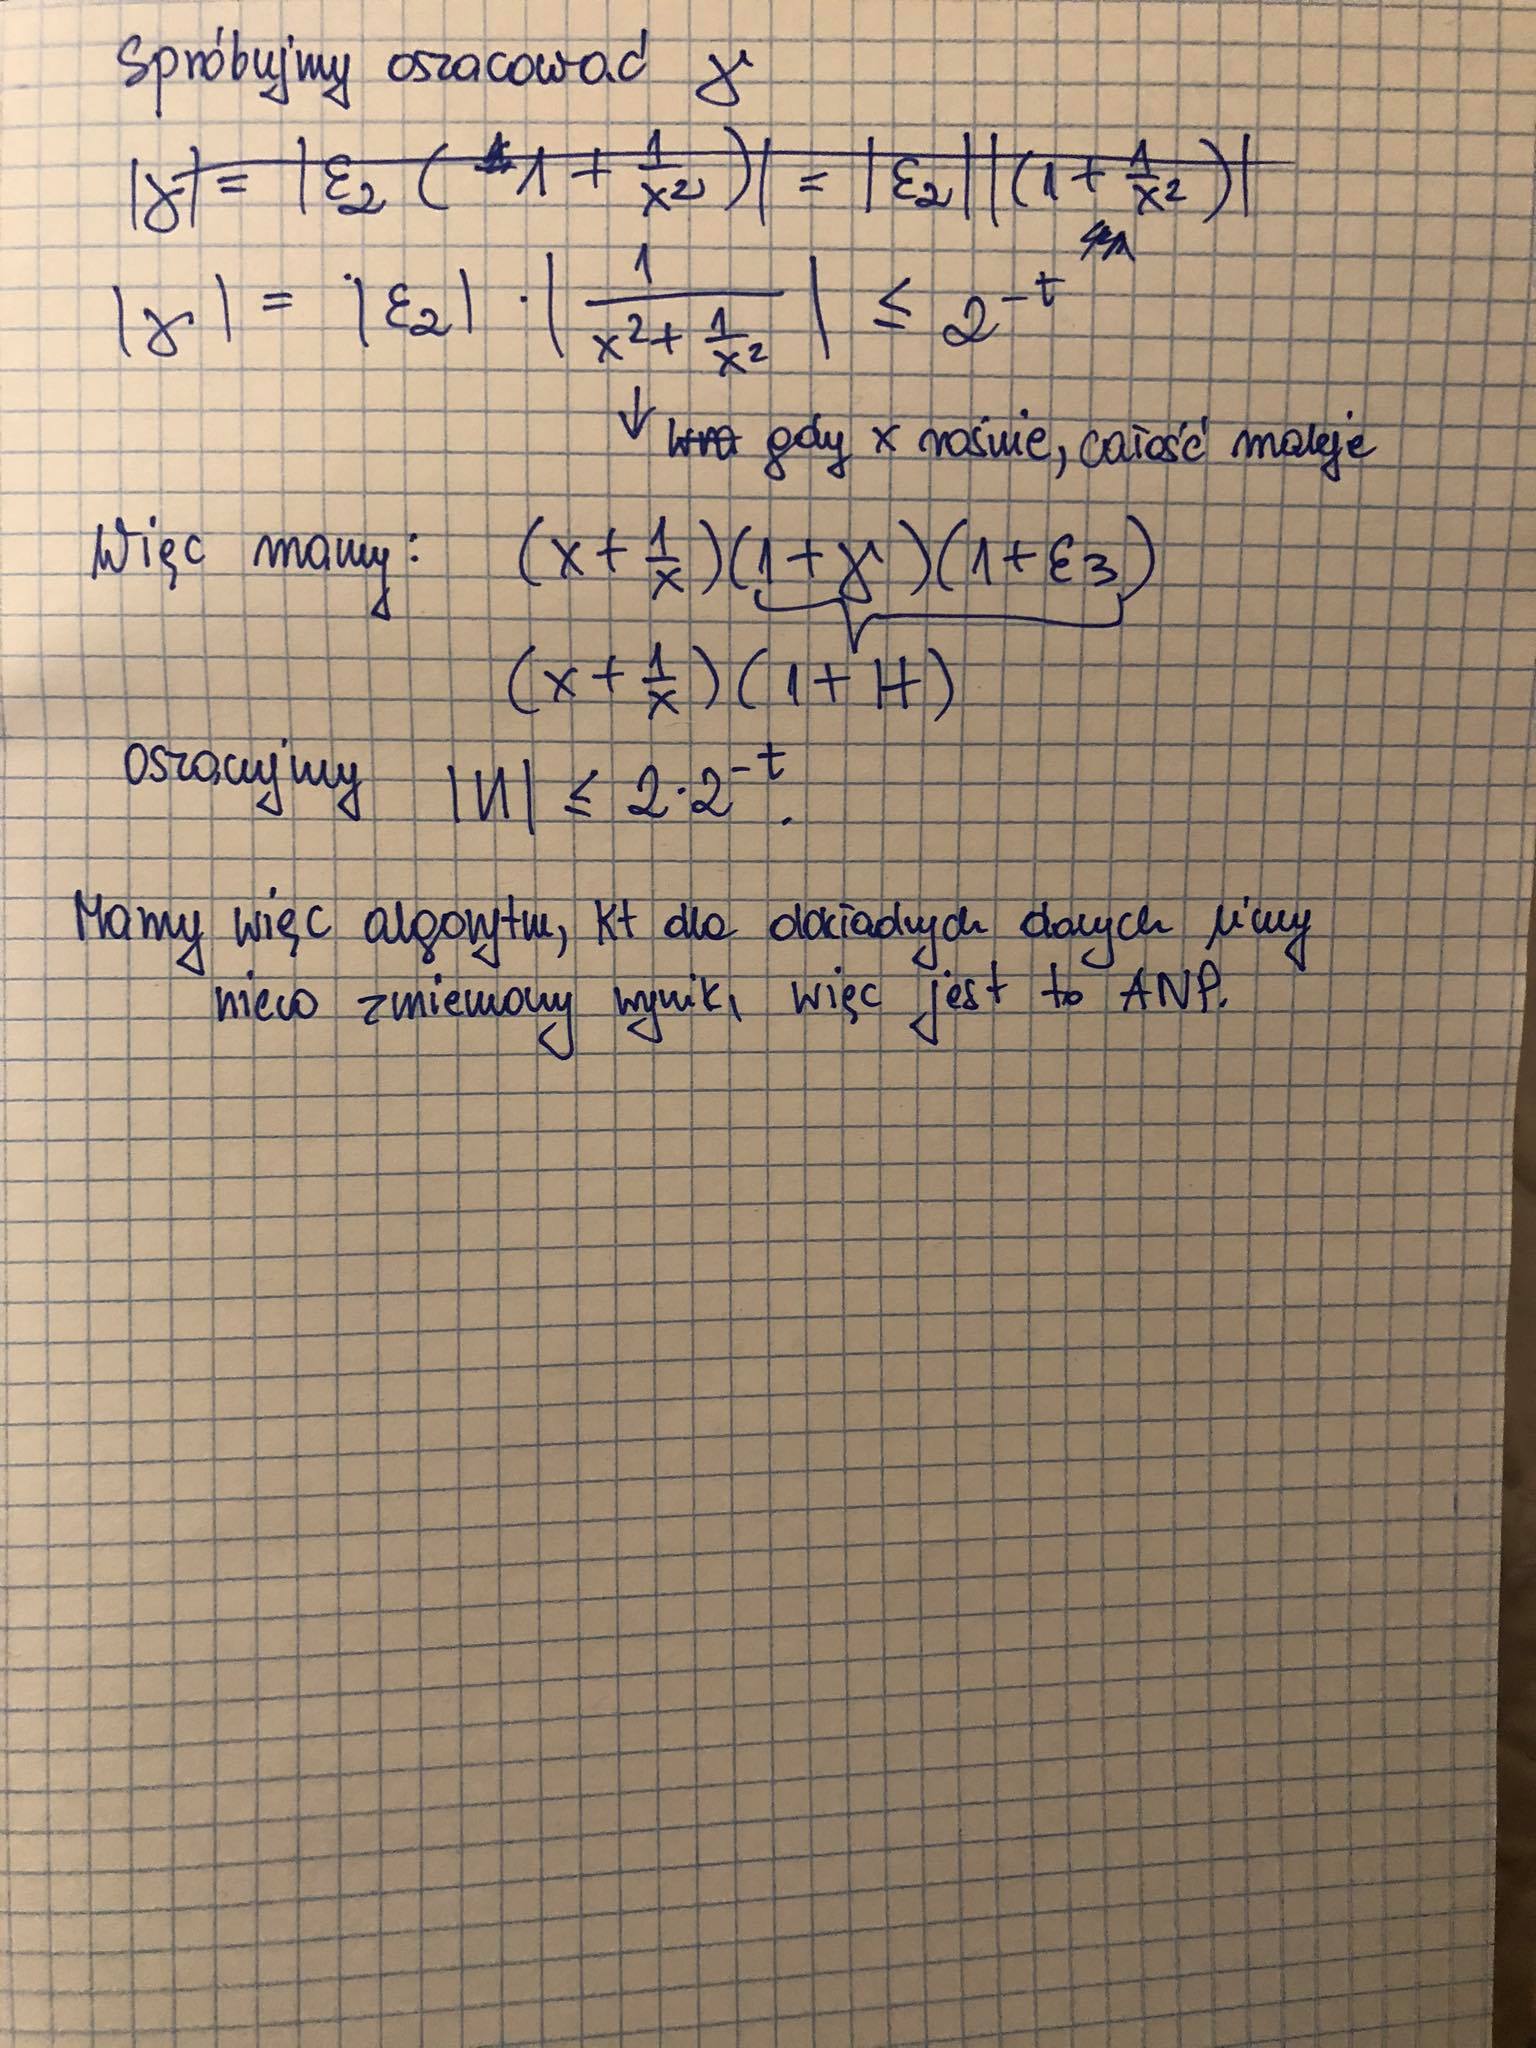 Spróbujmy oszacować γ
|γ| = |ε₂ (1 + 1/x²)| = |ε₂||(1 + 1/x²)|
|γ| = |ε₂| · |1/(x² + 1/x²)| ≤ 2^-t
↓ gdy x rośnie, całość maleje
Więc mamy: (x + 1/x)(1 + γ)(1 + ε₃)
(x + 1/x)(1 + H)
oszacujmy |H| ≤ 2·2^-t.
Mamy więc algorytm, kt dla dokładnych danych liczy
nieco zmieniony wynik, więc jest to ANP.